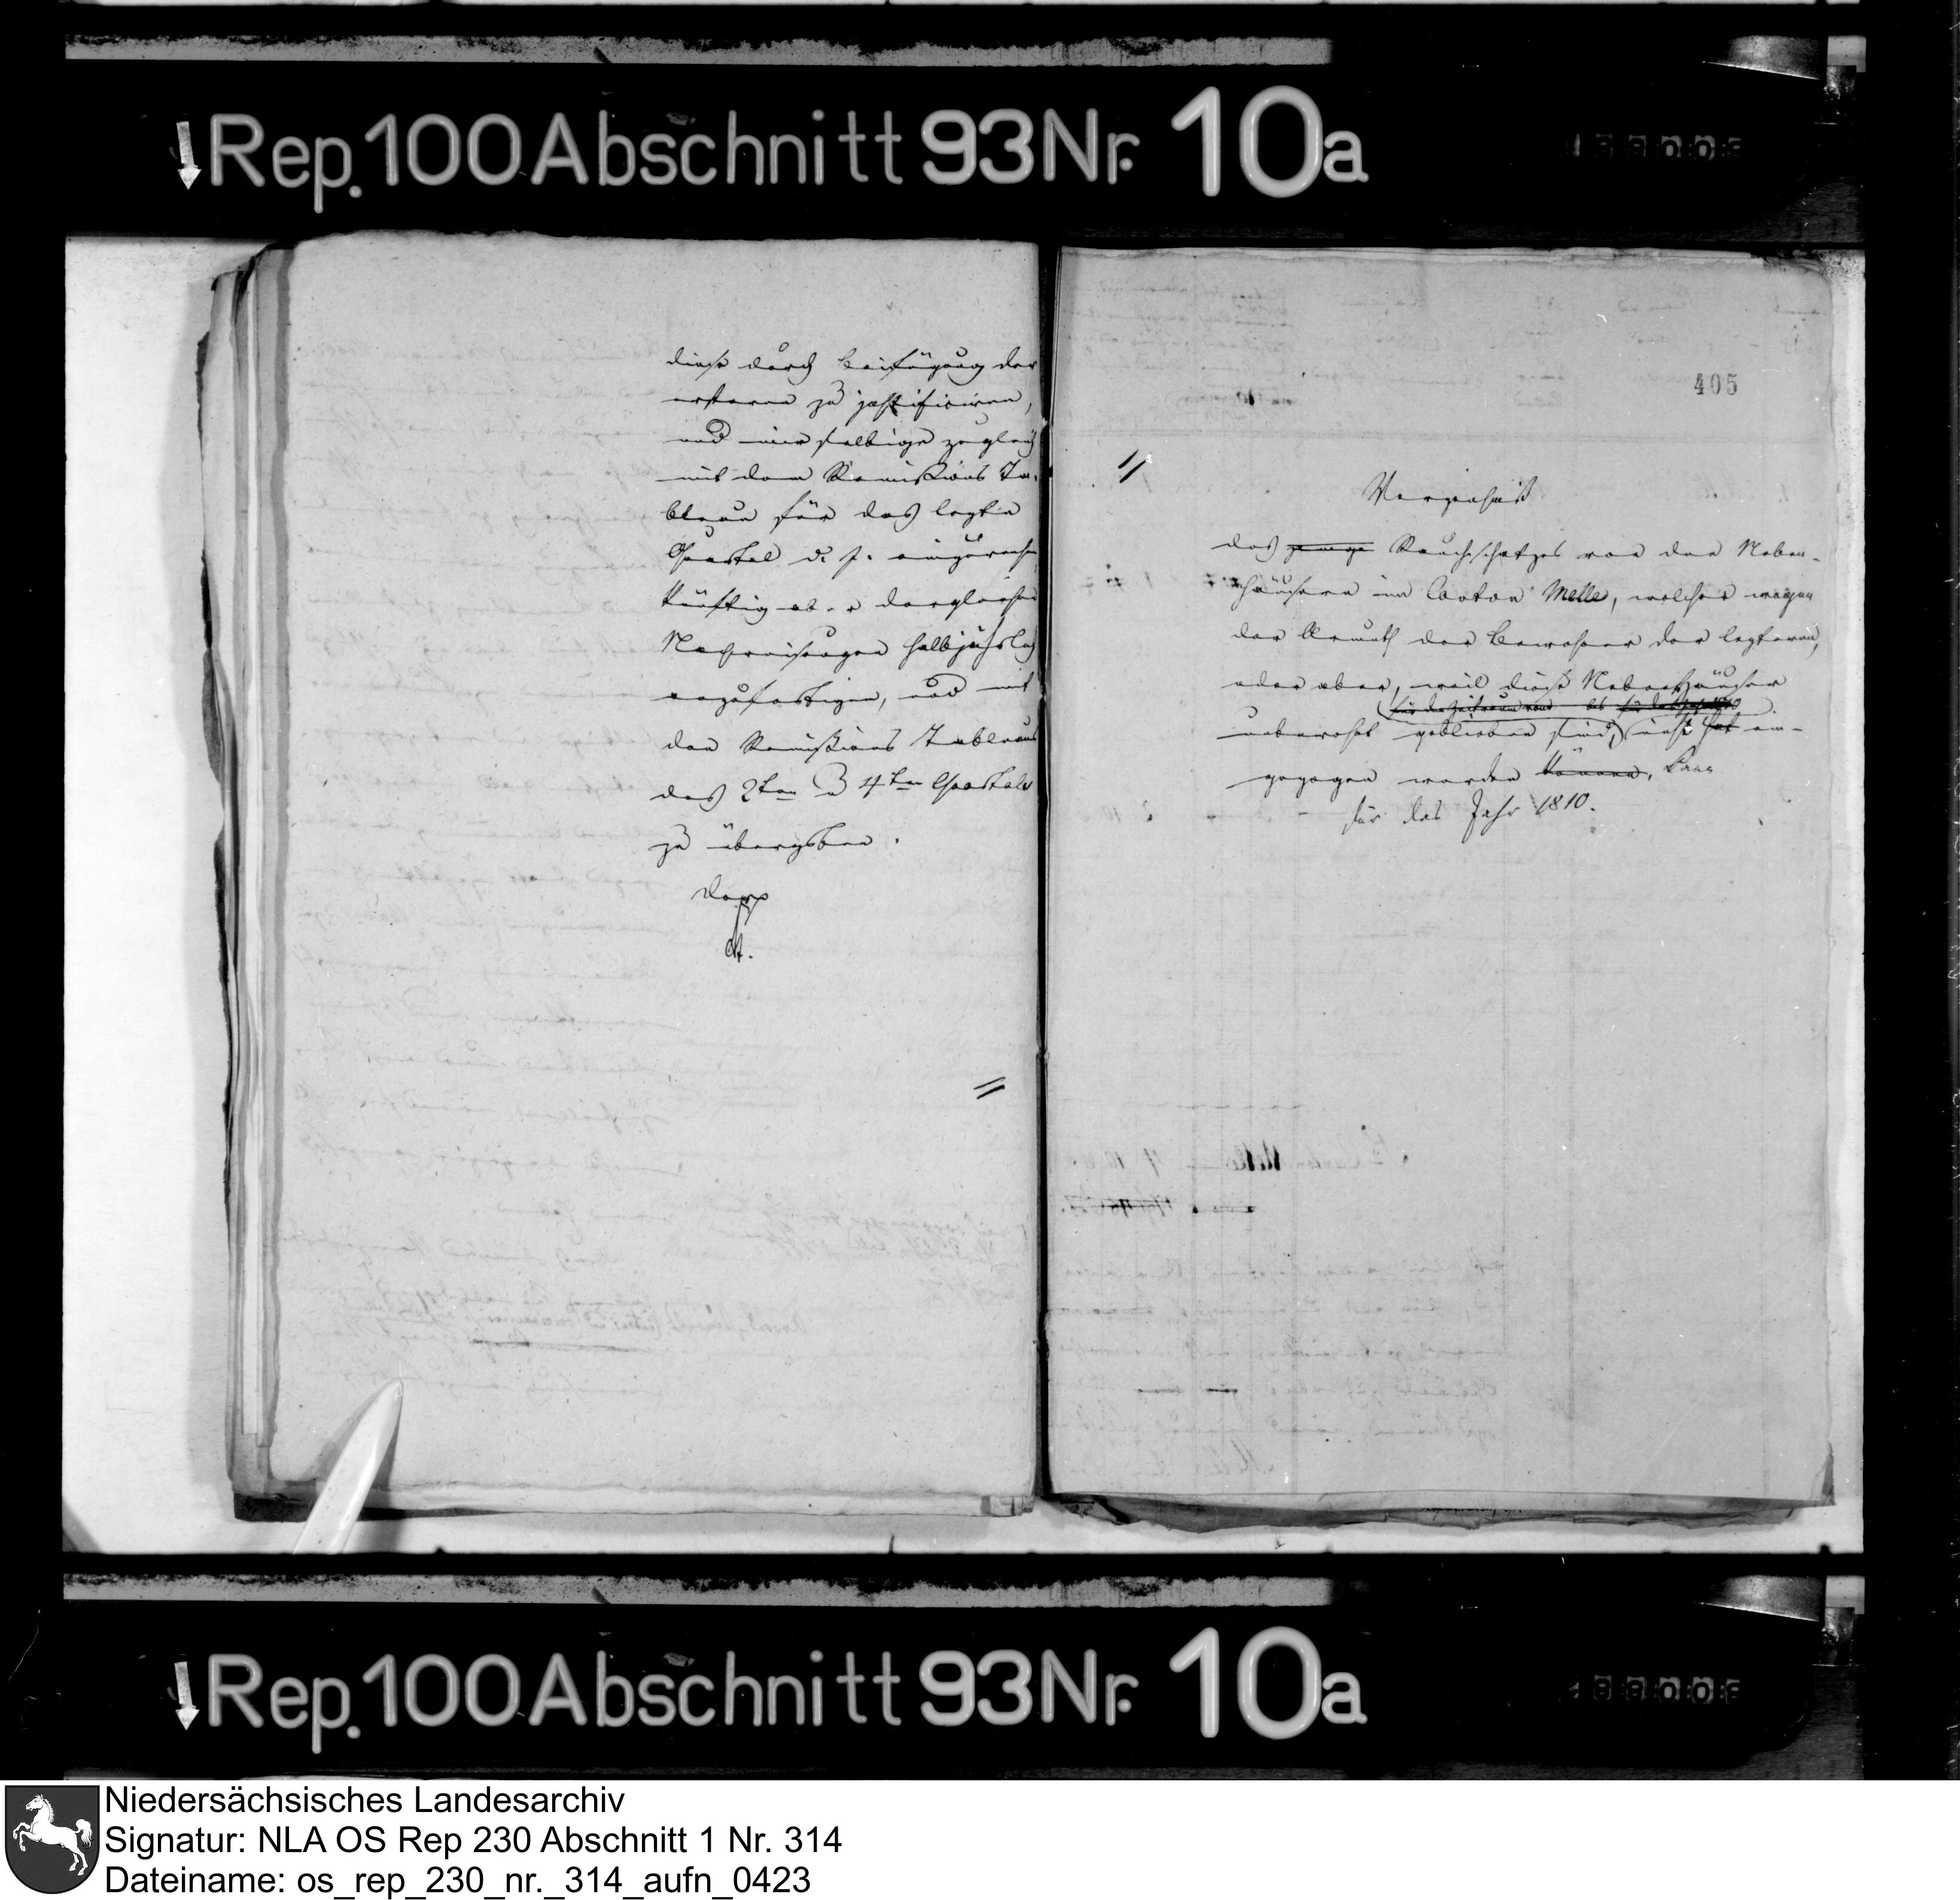 Rep. 100 Abschnitt 93 Nr. 10a
diese durch Beifügung der
ersteren zu justificiren,
und mir selbige zugleich
mit dem Remissions Ta-
bleau für das letzte
Quartal d. J. einzureichen
künftig aber dergleichen
Nachweisungen halbjährlich
anzufertigen, und mit
den Remissions Tableaus
des 2ten u 4ten Quartals
zu übergeben.
405
Verzeichniß
des Rauchschatzes von den Neben-
häusern im Canton Melle, welcher wegen
der Armuth der Bewohner der letzteren,
oder aber, weil diese Nebenhäuser
für den Zeitraum vom bis für das Jahr 1810
unbewohnt geblieben sind, nicht hat ein-
gezogen werden können,
für das Jahr 1810.
Rep. 100 Abschnitt 93 Nr. 10a
Niedersächsisches Landesarchiv
Signatur: NLA OS Rep 230 Abschnitt 1 Nr. 314
Dateiname: os_rep_230_nr._314_aufn_0423